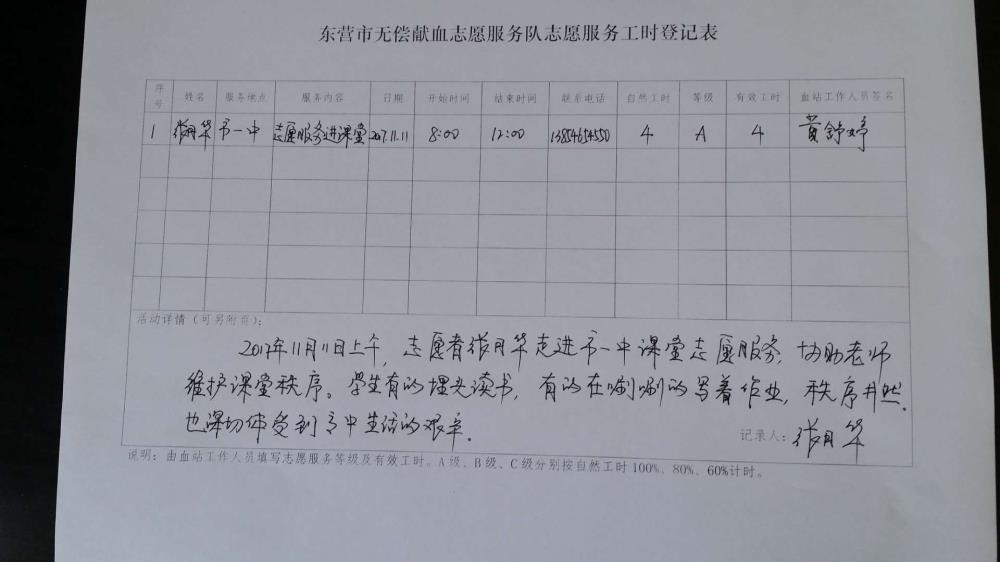 东营市无偿献血志愿服务队志愿服务工时登记表
序号 姓名 服务地点 服务内容 日期 开始时间 结束时间 联系电话 自然工时 等级 有效工时 血站工作人员签名
1 张月华 市一中 志愿服务进课堂 2017.11.11 8:00 12:00 13854654550 4 A 4 黄舒婷
活动详情（可另附页）：
2017年11月11日上午，志愿者张月华走进市一中课堂志愿服务，协助老师
维护课堂秩序。学生有的埋头读书，有的在唰唰的写着作业，秩序井然，
也深切体受到高中生活的艰辛。
记录人：张月华
说明：由血站工作人员填写志愿服务等级及有效工时。A级、B级、C级分别按自然工时100%、80%、60%计时。